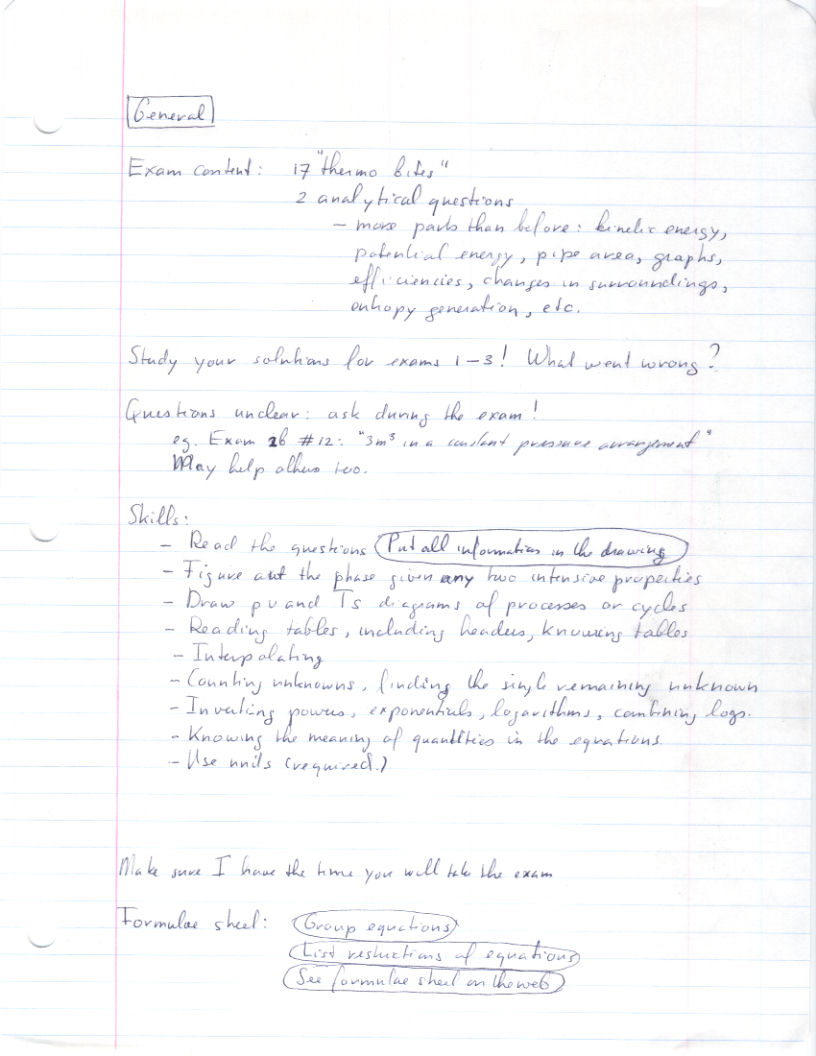 General
Exam content: 17 "thermo bites"
2 analytical questions
- more parts than before: kinetic energy,
potential energy, pipe area, graphs,
efficiencies, changes in surroundings,
entropy generation, etc.
Study your solutions for exams 1-3! What went wrong?
Questions unclear: ask during the exam!
eg. Exam 2b #12: "3m³ in a constant pressure arrangement"
May help others too.
Skills:
- Read the questions Put all information in the drawing
- Figure out the phase given any two intensive properties
- Draw pv and Ts diagrams of processes or cycles
- Reading tables, including headers, knowing tables
- Interpolating
- Counting unknowns, finding the single remaining unknown
- Inverting powers, exponentials, logarithms, combining logs.
- Knowing the meaning of quantities in the equations.
- Use units (required.)
Make sure I have the time you will take the exam
Formulae sheet: Group equations
List restrictions of equations
See formulae sheet on the web